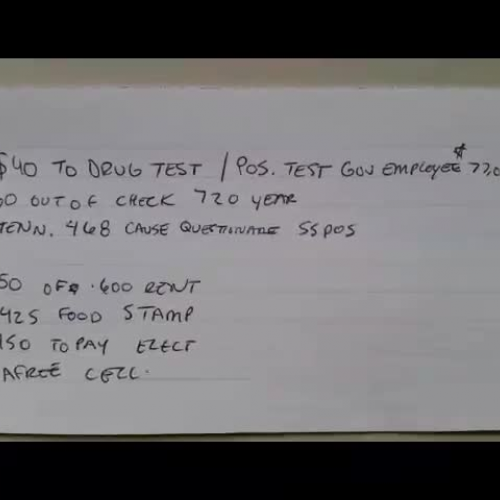 $40 TO DRUG TEST / POS. TEST GOV EMPLOYEE $ 77.0
00 OUT OF CHECK 720 YEAR
TENN. 468 CAUSE QUESTIONARE 55 POS
50 OFF .600 RENT
425 FOOD STAMP
150 TO PAY ELECT
A FREE CELL.